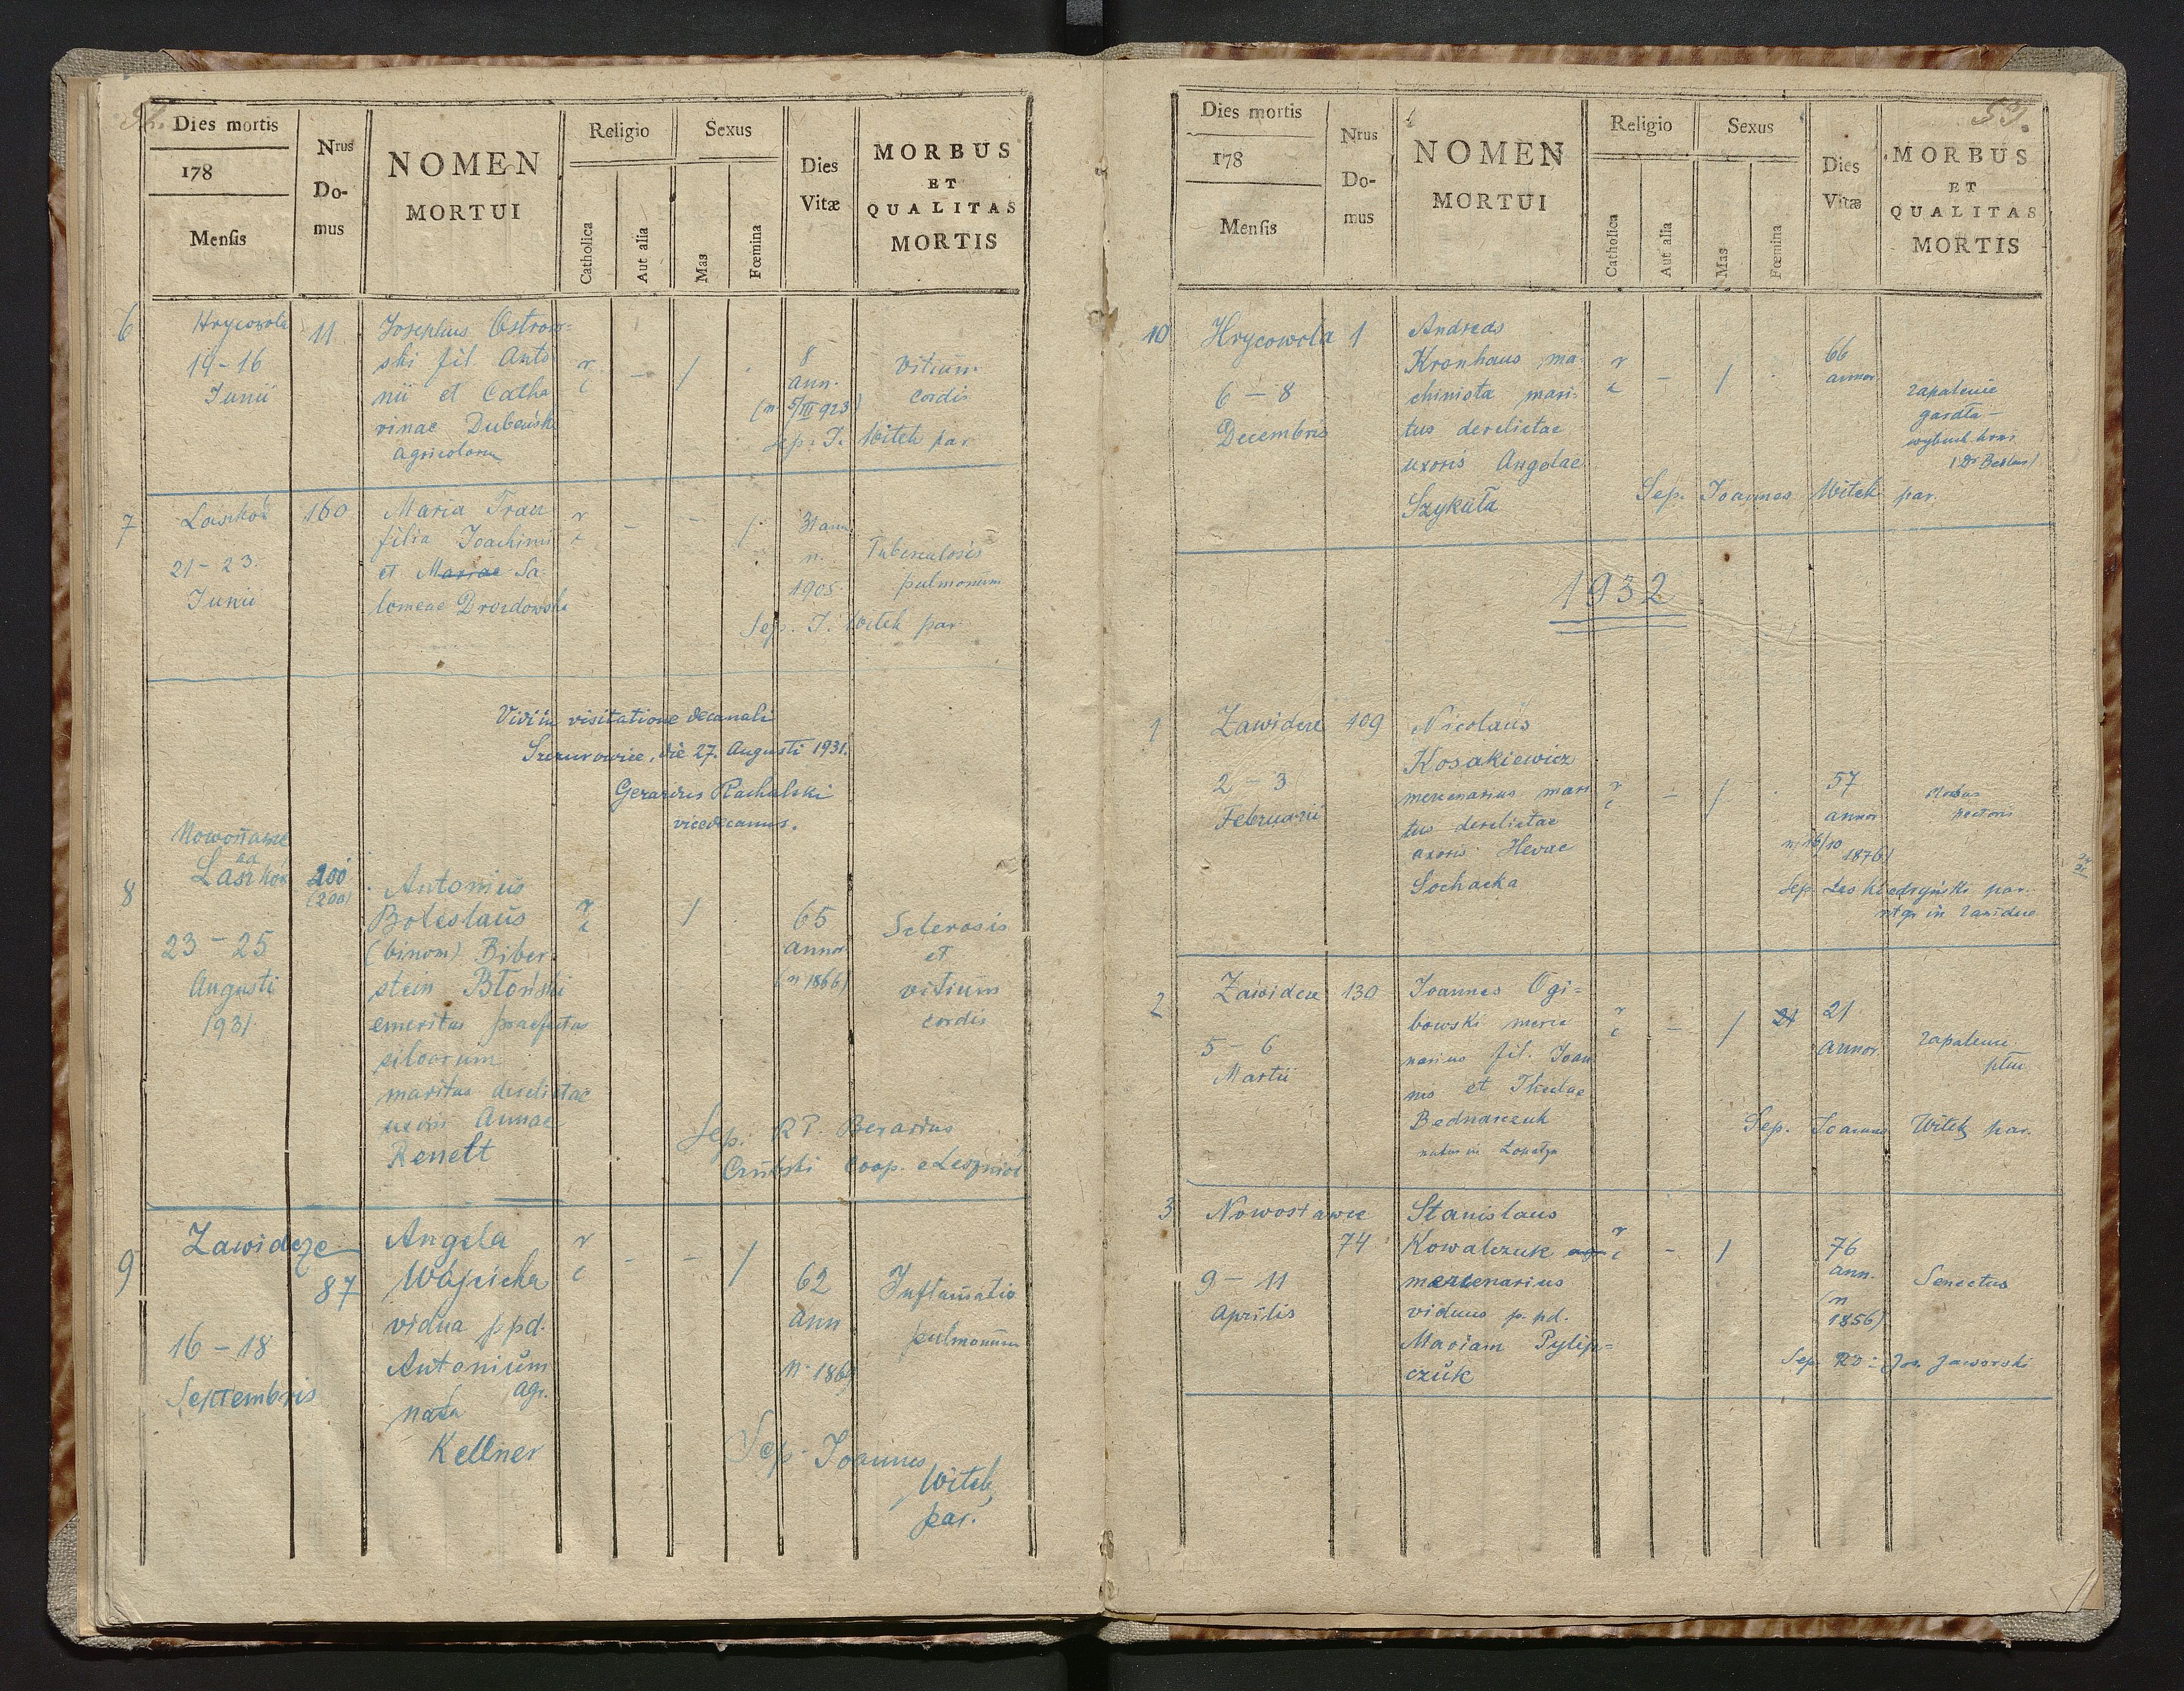 52.
Dies mortis
178
Mensis
Nrus
Do-
mus
NOMEN
MORTUI
Religio
Catholica
Aut alia
Sexus
Mas
Fœmina
Dies
Vitæ
MORBUS
ET
QUALITAS
MORTIS
6
Hrycowola
14-16
Junii
11
Josephus Ostrow=
ski fil Anto
nii et Catha
rinae Dubeńsk
agricolarum
r
c
-
/
8
ann.
(n. 5/III 923)
Vitium
cordis
Sep. J. Witek par
7
Laszków
21-23.
Junii
160
Maria Trau
filia Joachimi
et Mariae Sa
lomeae Drozdowska
r
c
-
-
/
31 ann.
n.
1905
Tuberculosis
pulmonum
Sep. J. Witek par
Vidi in visitatione decanali
Szczurowice, die 27. Augusti 1931.
Gerardus Rachalski
vicedecanus.
8
Nowostawce
ad
Laszków
23-25
Augusti
1931.
200
(200)
Antonius
Boleslaus
(binom) Biber-
stein Błoński
emeritus praefectus
silvarum
maritus derelictae
uxoris Annae
Renett
r
c
/
65
annor
(n 1866)
Sclerosis
et
vitium
cordis
Sep. R.P. Berardus
coop. e Leszniów
9
Zawidcze
16-18
Septembris
87
Angela
Wójcicka
vidua p pd.
Antonium
agr.
nata
Kellner
r
c
-
-
/
62
ann
n. 1869
Inflamatio
pulmonum
Sep. Joannes
Witek
par.
53.
Dies mortis
178
Mensis
Nrus
Do-
mus
NOMEN
MORTUI
Religio
Catholica
Aut alia
Sexus
Mas
Fœmina
Dies
Vitæ
MORBUS
ET
QUALITAS
MORTIS
10
Hrycowola
6-8
Decembris
1
Andreas
Kronhaus ma-
chinista mari-
tus derelictae
uxoris Angelae
Szykuła
r
c
-
/
66
annor
zapalenie
gardła-
wybuch krwi
Sep. Joannes Witek par.
1932
1
Zawidcze
2-3
Februarii
109
Nicolaus
Kosakiewicz
mercenarius mari
tus derelictae
uxoris Hevae
Sochacka
r
c
-
/
57
annor
n. 16/10
1876)
Morbus
pectoris
par.
in Zawidcze
2
Zawidcze
5-6
Martii
130
Joannes Ogi=
bowski merce
narius fil. Joan
nis et Theclae
Bednarczuk
natus in Łopatyn
r
c
-
/
21
21
annor
zapalenie
płuc
Sep. Joannes Witek par.
3
Nowostawce
9-11
Aprilis
74
Stanislaus
Kowalczuk agr
mercenarius
viduus p. pd.
Mariam Pylip=
czuk
r
c
-
/
76
ann.
(n
1856)
Senectus
Sep. Jaworski